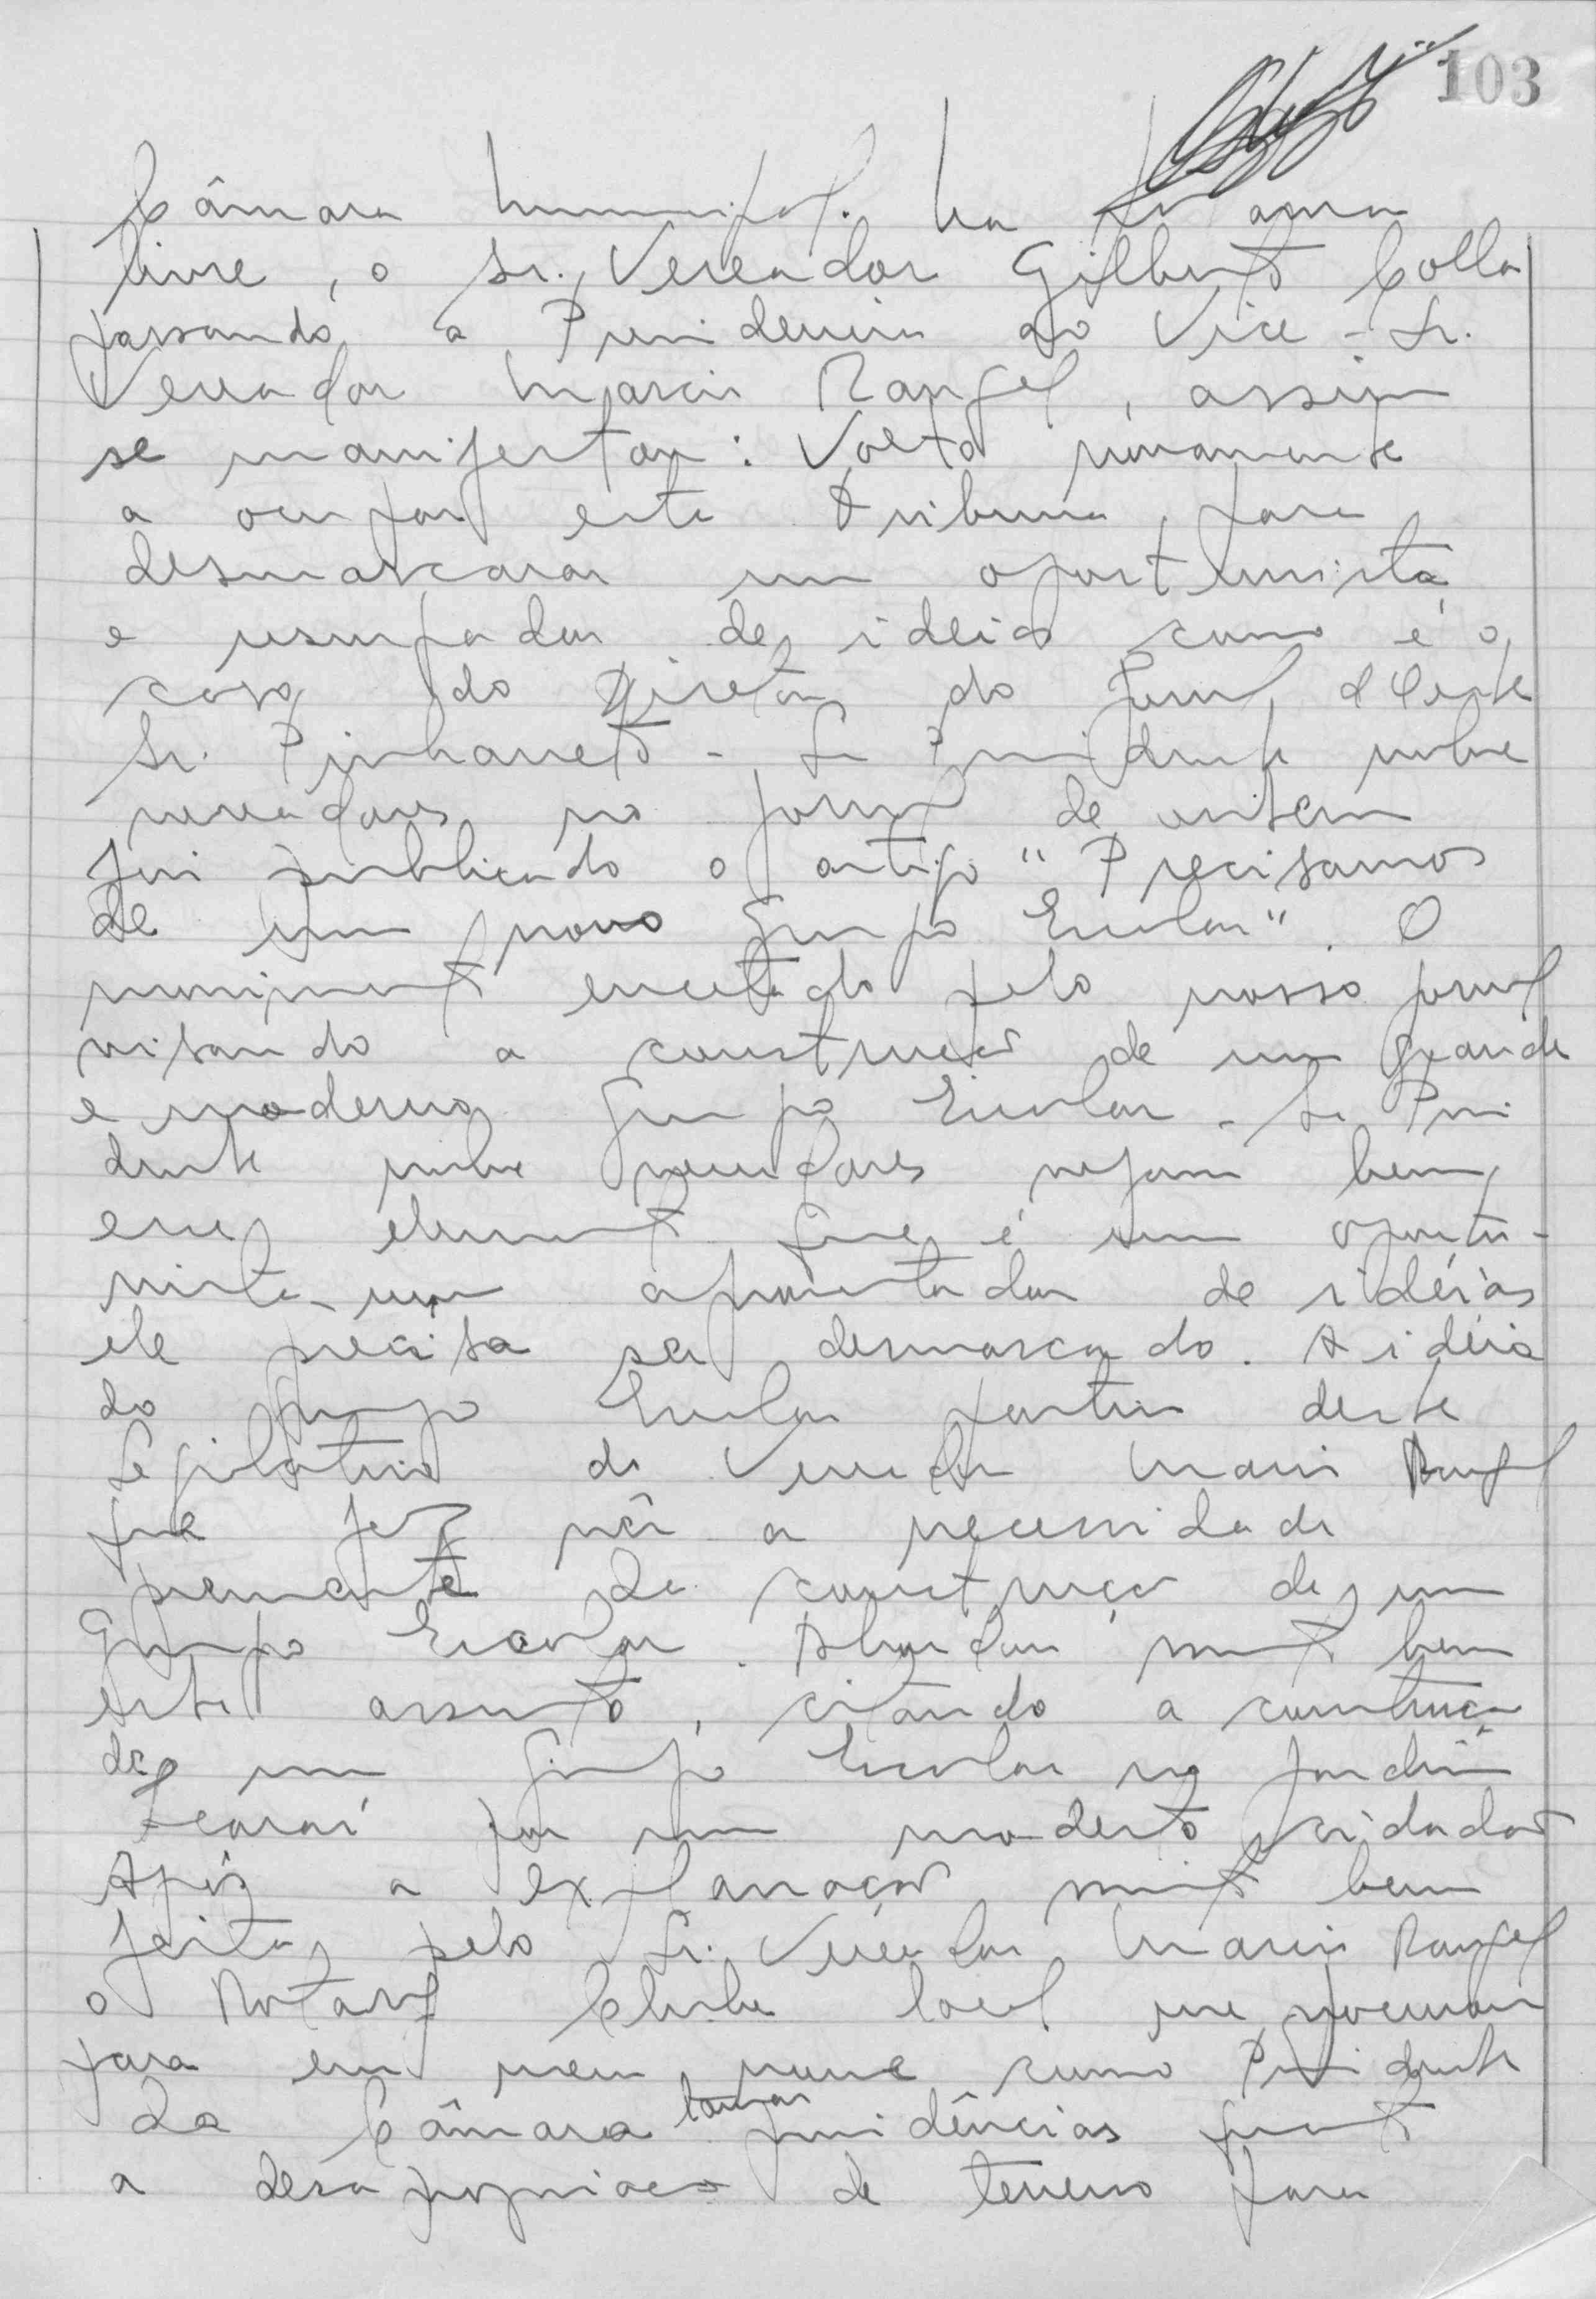 103
Câmara Municipal. Na tribuna
livre, o Sr. Vereador Gilberto Colla
passando a Presidencia ao Vice - Sr.
Vereador Marcio Rangel, assim
se manifestou: Volto novamente
a ocupar esta tribuna, para
desmascarar um oportunista
e usurpador de idéias como é o
caso do Diretor do Jornal d'Oeste
Sr. Pinhaneto - Sr Presidente nobre
vereadores no jornal de ontem
foi publicado o artigo "Precisamos
de um novo Grupo Escolar". O
movimento encetado pelo nosso jornal
visando a construção de um grande
e moderno Grupo Escolar - Sr Presi
dente nobre vereadores vejam bem,
esse elemento que é um oportu-
nista - um aproveitador de idéias
ele precisa ser desmascarado. A idéia
do Grupo Escolar partiu deste
Legislativo do Vereador Marcio Rangel
que fez vêr a necessidade
premente da construção de um
Grupo Escolar. Abordou muito bem
este assunto, citando a construçã
de um Grupo Escolar no Jardim
Icaraí por um modesto cidadão
Após a explanação muito bem
feita pelo Sr. Vereador Marcio Rangel
o Rotary Clube local me procurou
para em meu nome como Presidente
da Câmara tomar providências quanto
a desapropriação de terreno para